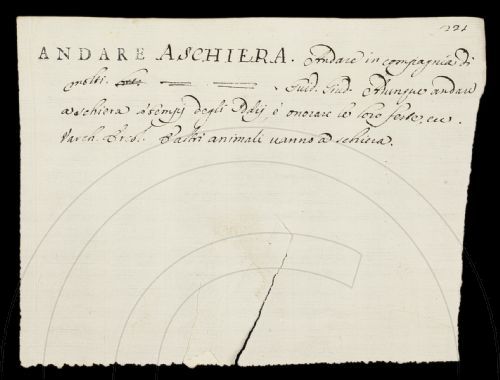 221
ANDARE A SCHIERA. Andare in compagnia di
molti. Guid. Giud. Adunque andare
a schiera a' tempj degli Iddij è onorare le loro feste, ec.
Varch. Er. s. altri animali vanno a schiera.